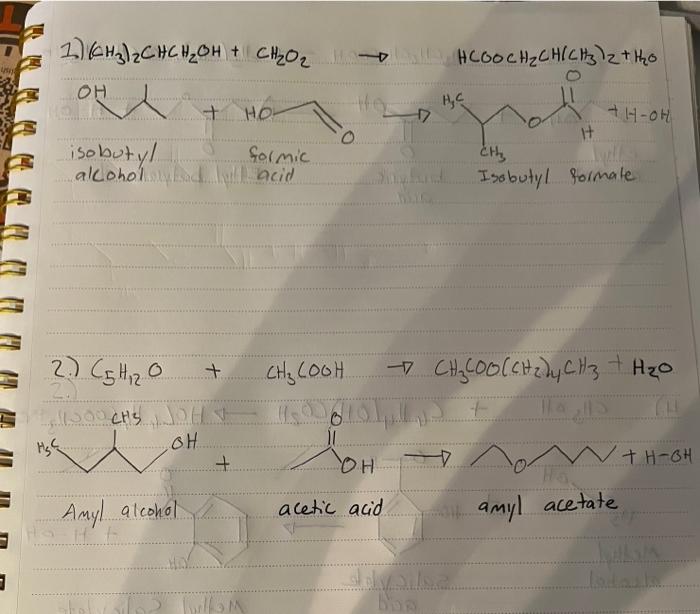 1) (CH3)2CHCH2OH + CH2O2 → HCOOCH2CH(CH3)2 + H2O
OH + HO O → H3C CH3 O O H + H-OH
isobutyl alcohol formic acid Isobutyl formate
2.) C5H12O + CH3COOH → CH3COO(CH2)4CH3 + H2O
H3C CH3 OH + O OH → O + H-OH
Amyl alcohol acetic acid amyl acetate